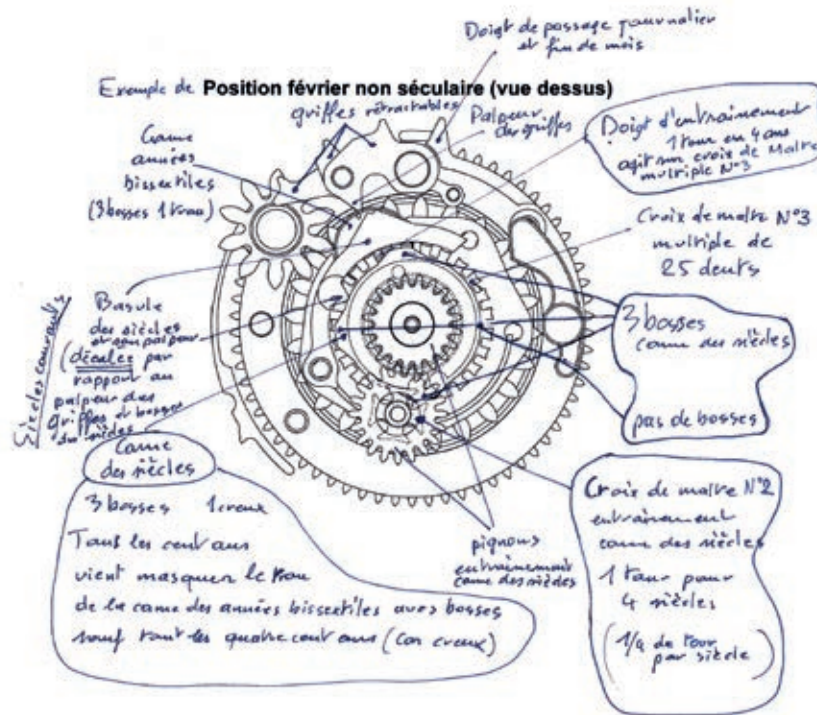 Doigt de passage journalier
et fin de mois
Exemple de Position février non séculaire (vue dessus)
griffes rétractables
Palpeur
des griffes
Came
années
bissextiles
(3 bosses 1 trou)
Doigt d'entrainement
1 tour en 4 ans
agit sur croix de Malte
multiple N°3
Croix de malte N°3
multiple de
25 dents
Siècles courants
Bascule
des siècles
et son palpeur
(décalée par
rapport au
palpeur des
griffes et bosses
des siècles
3 bosses
came des siècles
pas de bosses
Came
des siècles
3 bosses 1 creux
Tous les cent ans
vient masquer le trou
de la came des années bissextiles avec bosses
sauf tout les quatre cent ans (car creux)
pignons
entrainement
came des siècles
Croix de malte N°2
entrainement
came des siècles
1 tour pour
4 siècles
(1/4 de tour
par siècle)